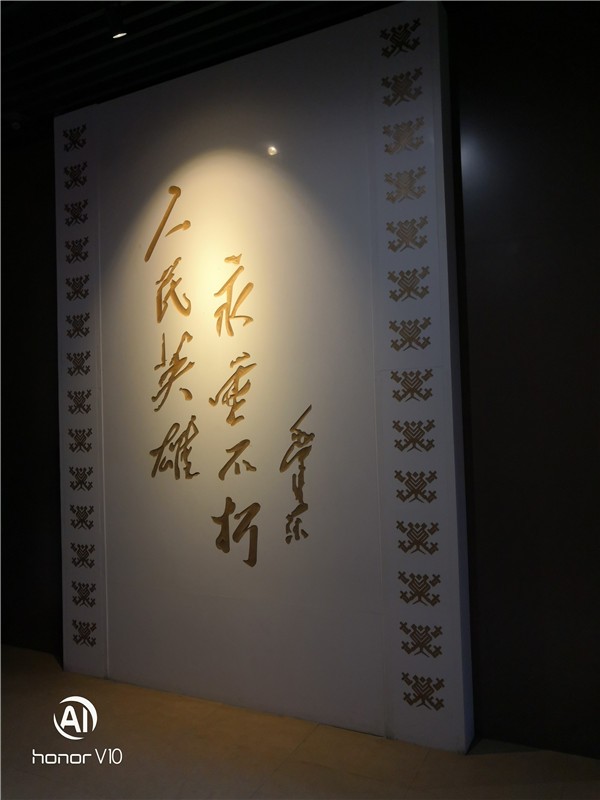 人民英雄
永垂不朽
毛泽东
AI
honor V10